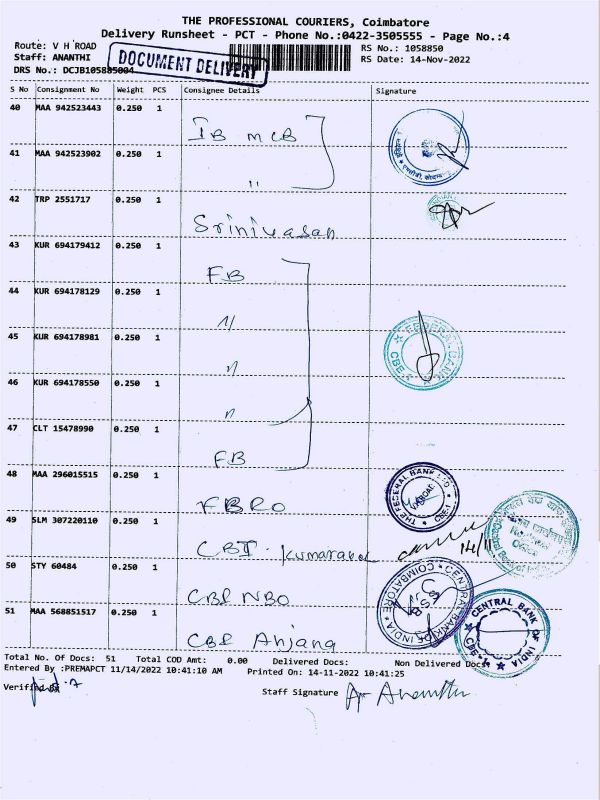 THE PROFESSIONAL COURIERS, Coimbatore
Delivery Runsheet - PCT - Phone No.:0422-3505555 - Page No.:4
Route: V H ROAD
RS No.: 1058850
Staff: ANANTHI
DOCUMENT DELIVERY
RS Date: 14-Nov-2022
DRS No.: DCJB105885004
S No Consignment No Weight PCS Consignee Details Signature
40 MAA 942523443 0.250 1 IB MCB
41 MAA 942523902 0.250 1 "
42 TRP 2551717 0.250 1 Srinivasan
43 KUR 694179412 0.250 1 FB
44 KUR 694178129 0.250 1 "
45 KUR 694178981 0.250 1 "
FEDERAL BANK
CBE-1
46 KUR 694178550 0.250 1 "
47 CLT 15478990 0.250 1 FB
48 MAA 296015515 0.250 1 FBRO
THE FEDERAL BANK LTD
CBE-1
49 SLM 307220110 0.250 1 CBI - Kumaran
14/11
50 STY 60484 0.250 1 CBI NBO
CENTRAL BANK OF INDIA
COIMBATORE
51 MAA 568851517 0.250 1 CBI Anjang
CENTRAL BANK OF INDIA
CBE-1
Total No. Of Docs: 51 Total COD Amt: 0.00 Delivered Docs: Non Delivered Docs:
Entered By :PREMAPCT 11/14/2022 10:41:10 AM Printed On: 14-11-2022 10:41:25
Verified By
Staff Signature Ananthi